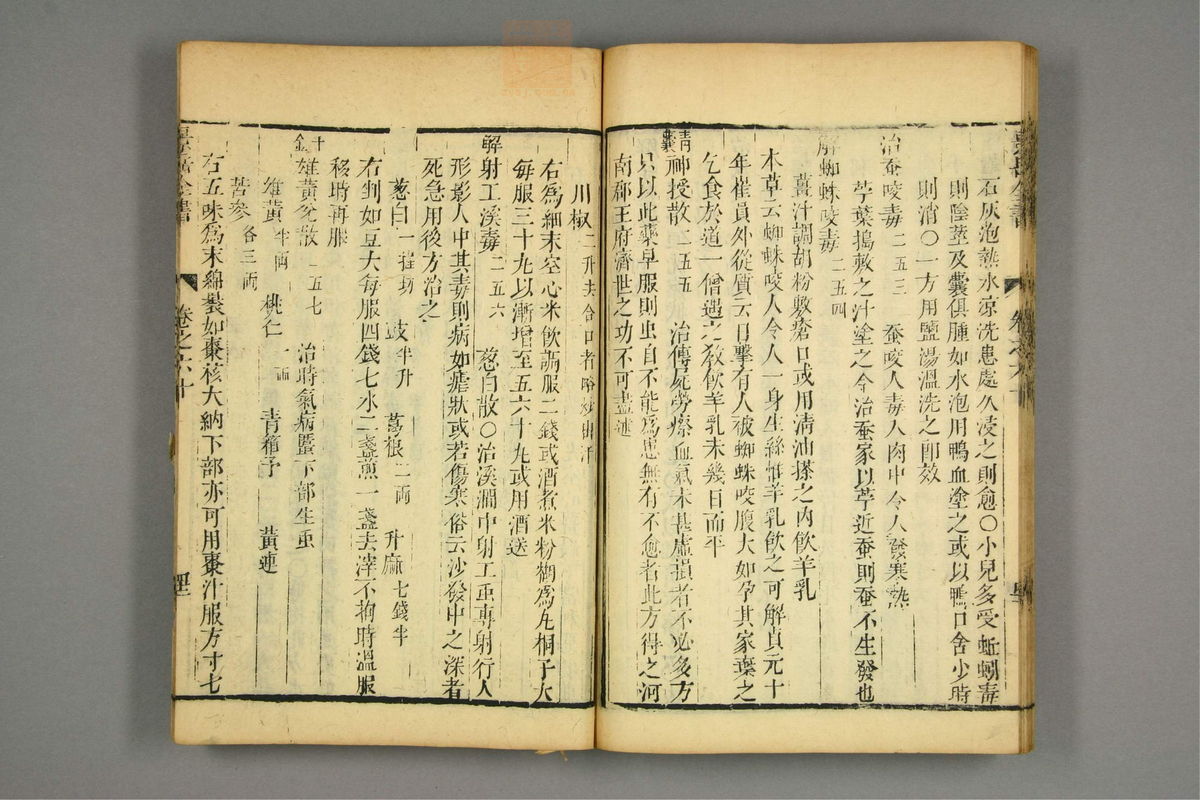 石灰泡熱水涼洗患處久浸之則愈〇小兒多受蚯蚓毒
則陰莖及囊俱腫如水泡用鴨血塗之或以鴨口含少時
則消〇一方用鹽湯溫洗之即效
治蚕咬毒二五三 蚕咬人毒入肉中令人發寒熱
苧葉搗敷之汁塗之今治蚕家以苧近蚕則蚕不生發也
解蜘蛛咬毒二五四
薑汁調胡粉敷瘡口或用清油搽之內飲羊乳
本草云蜘蛛咬人令人一身生絲惟羊乳飲之可解貞元十
年崔員外從質云目擊有人被蜘蛛咬腹大如孕其家棄之
乞食於道一僧遇之教飲羊乳未幾日而平
青囊神授散二五五 治傳屍勞瘵血氣未甚虛損者不必多方
只以此藥早服則虫自不能為患無有不愈者此方得之河
南郡王府濟世之功不可盡述
川椒二升去合口者略炒出汗
右為細末空心米飲調服二錢或酒煮米粉糊為丸桐子大
每服三十丸以漸增至五六十丸或用酒送
解射工溪毒二五六 葱白散〇治溪澗中射工虫專射行人
形影人中其毒則病如瘧狀或若傷寒俗云沙發中之深者
死急用後方治之
葱白一握切 豉半升 葛根二兩 升麻七錢半
右剉如豆大每服四錢七水二盞煎一盞去滓不拘時溫服
移時再服
千金雄黃兌散二五七 治時氣病䘌下部生虫
雄黃半兩 桃仁一兩 青葙子 黃連
苦參各三兩
右五味為末綿裝如棗核大納下部亦可用棗汁服方寸七
卷之六十